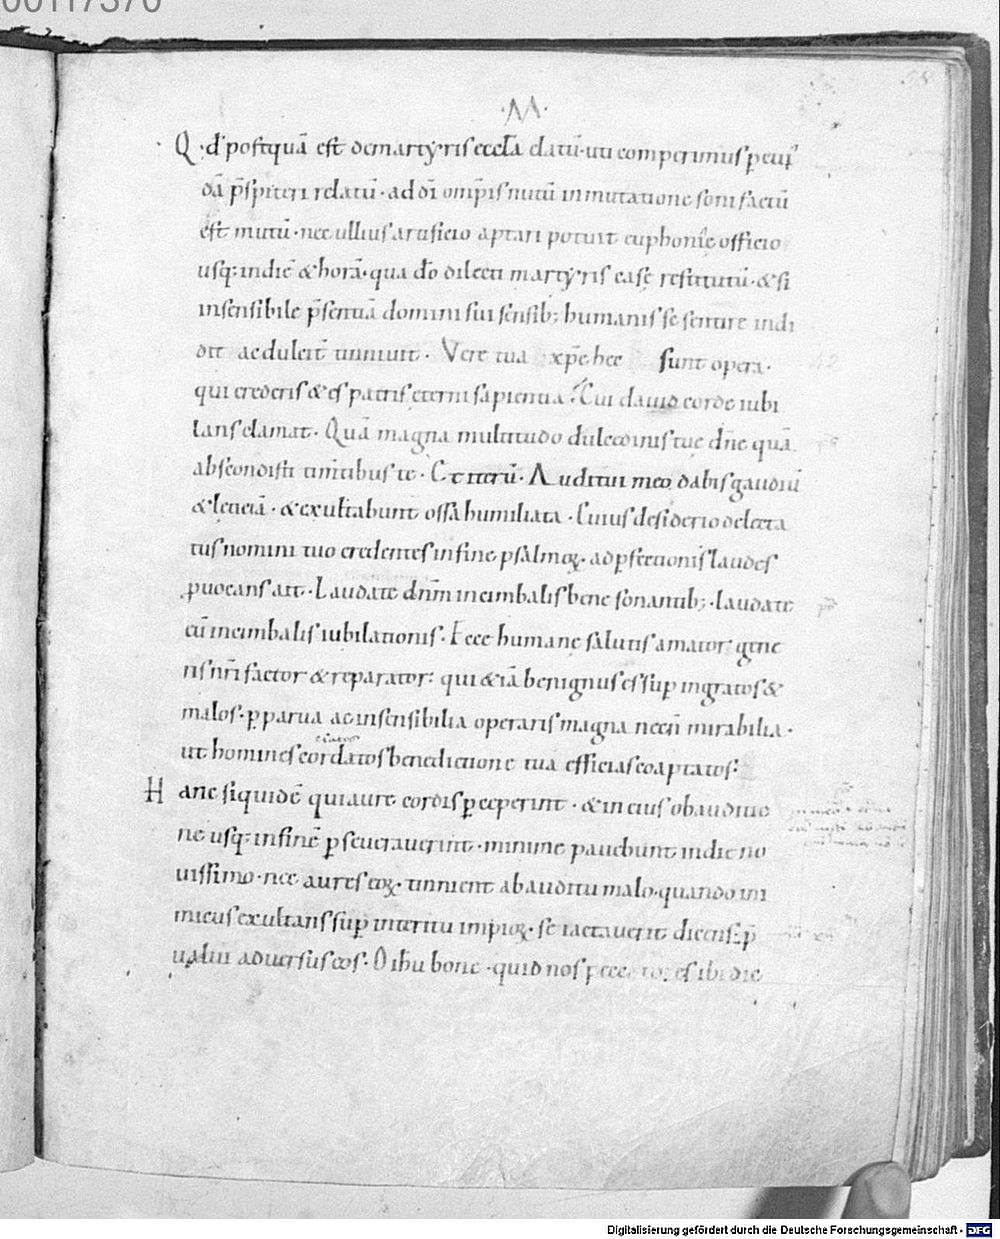 00117370
55
·M·
Q·d' postquā est demartyris eccla elatū·uti comperimus p cuiꝰ
dā p̄spiteri relatū·ad dī omp̄is nutū inmutatione soni factū
est mutū·nec ullius artificio aptari potuit euphonię officio
usq; indiē & horā·qua do dilecti martyris casę restitutū·& si
insensibile p̄sentiā domini sui sensib; humanis se sentire indi
dit ac dulcit tinniuit· Vere tua xp̄e hec sunt opera·
qui crederis & es patris eterni sapientia·Cui dauid corde iubi
lans clamat·Quā magna multitudo dulcedinis tuę dn̄e quā
abscondisti timtibus te·Et iterū·Auditui meo dabis gaudiū
& leticiā·& exultabunt ossa humiliata·Cuius desiderio delecta
tus nomini tuo credentes infine psalmoꝝ·ad pfectionis laudes
puocans ait·Laudate dn̄m incimbalis bene sonantib;·laudate
eū incimbalis iubilationis·Ecce humanę salutis amator gene
ris nr̄i factor & reparator: qui & iā benignus es sup ingratos &
malos·p parua ac insensibilia operaris magna necn̄ mirabilia·
ut homines cordatos benedictione tua efficias coaptatos:
Hanc siquidē qui aure cordis pceperint·& in eius obauditio
ne usq; infinē pseuerauerint·minime pauebunt indie no
uissimo·nec aures eoꝝ tinnient abauditu malo·quando ini
micus exultans sup interitu impioꝝ·se iactauerit dicens: p̄
ualui aduersus eos·O ihu bone·quid nos ibi die
Digitalisierung gefördert durch die Deutsche Forschungsgemeinschaft - DFG